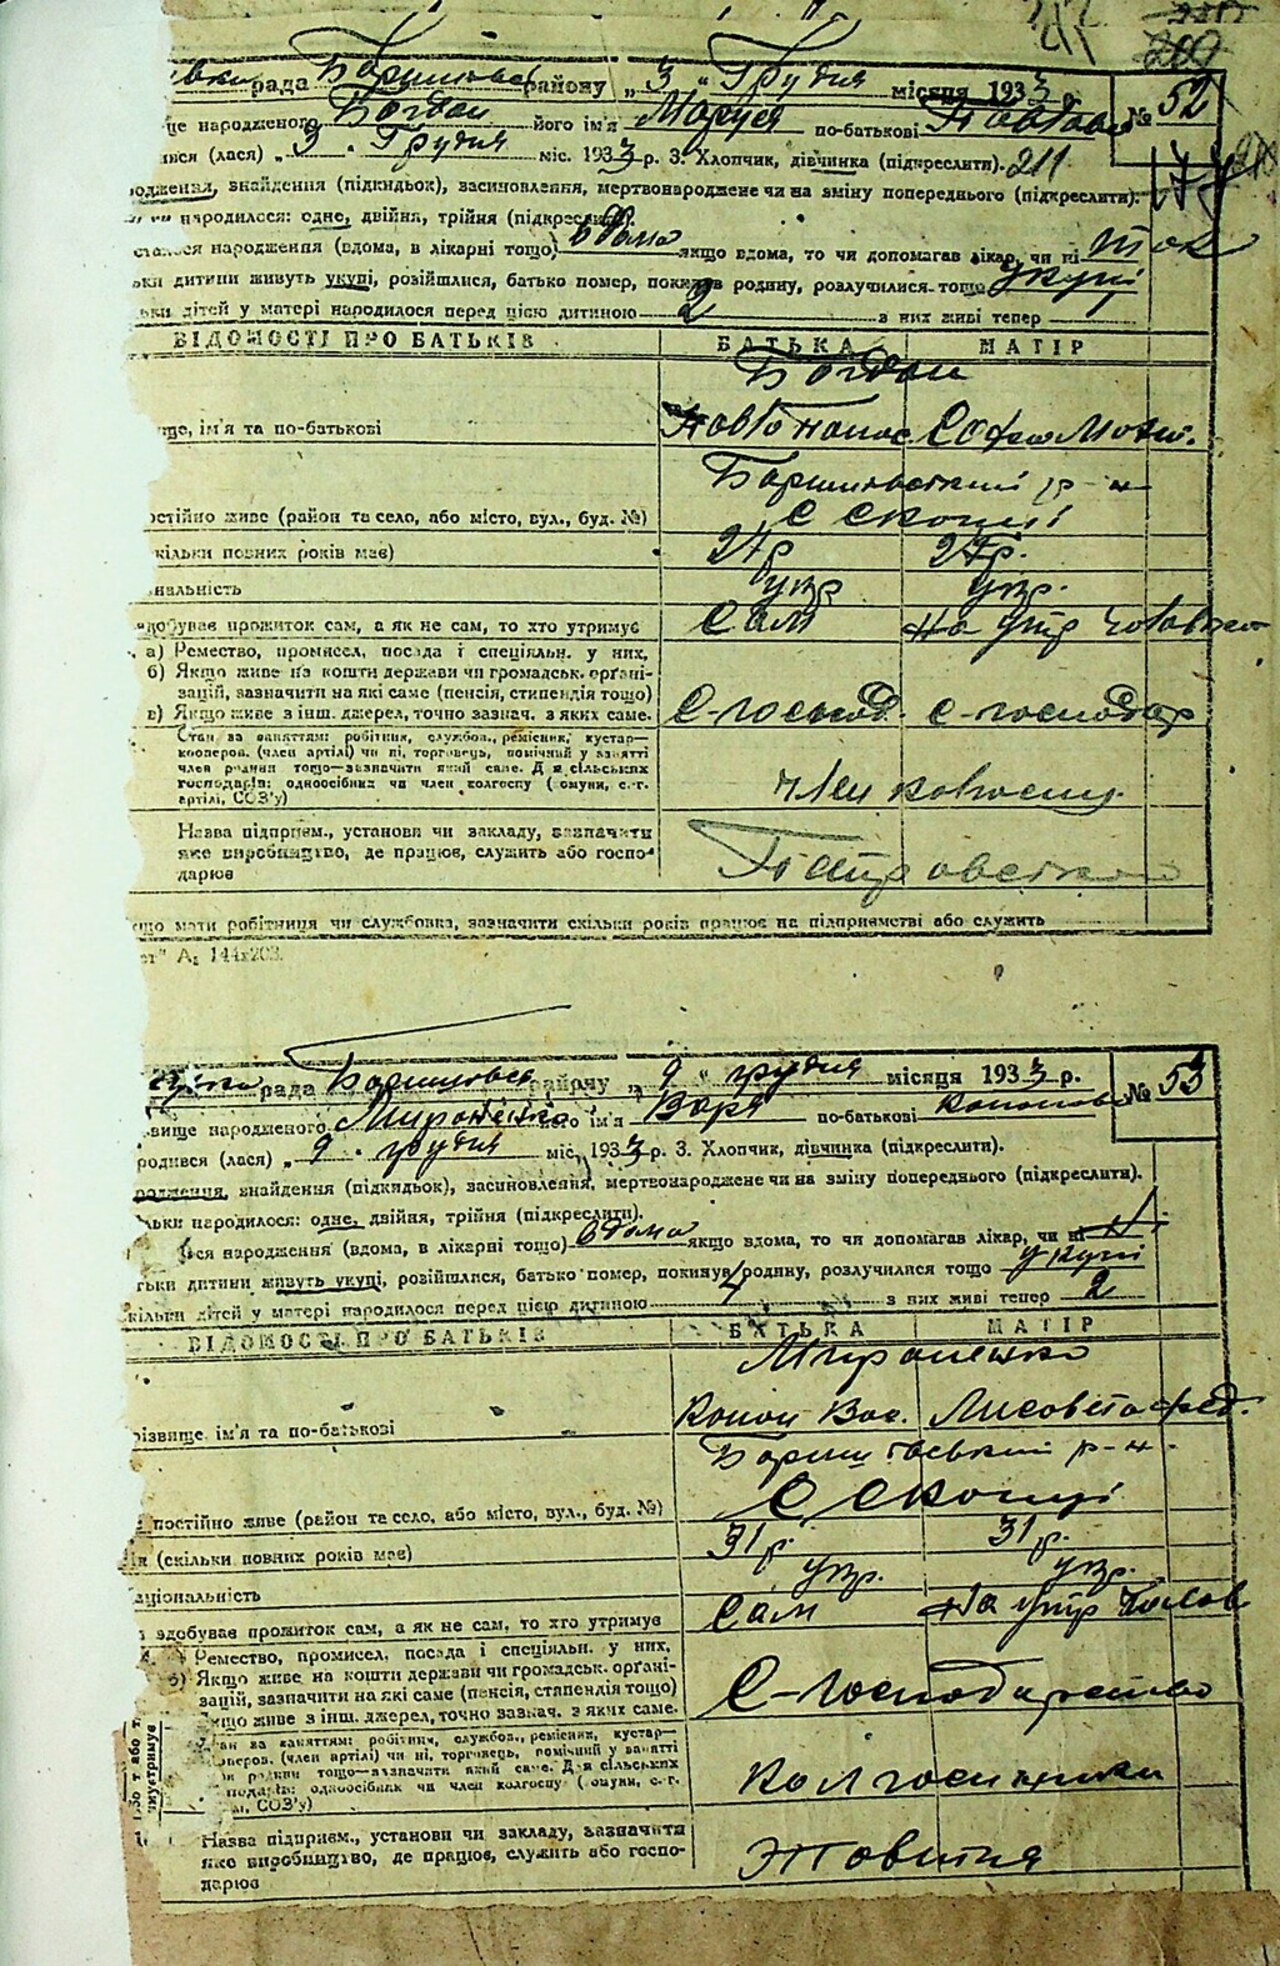 рада Баришівс району „ 3 " Грудня місяця 1933 р.
№ 52
це народженого Богдан його ім'я Маруся по-батькові Павловна
вся (лася) „ 3 . Грудня міс. 1933 р. 3. Хлопчик, дівчинка (підкреслити). 211
одження, знайдення (підкидьок), засиновлення, мертвонароджене чи на зміну попереднього (підкреслити).
народилося: одне, двійня, трійня (підкреслити).
сталося народження (вдома, в лікарні тощо) вдома якщо вдома, то чи допомагав лікар, чи ні так
ьки дитини живуть укупі, розійшлися, батько помер, покинув родину, розлучилися тощо укупі
ьки дітей у матері народилося перед цією дитиною 2 з них живі тепер
ВІДОМОСТІ ПРО БАТЬКІВ БАТЬКА МАТІР
Богдан
ще, ім'я та по-батькові
Баришівський р-н
остійно живе (район та село, або місто, вул., буд. №) С Скопці
кільки повних років має) 27р 27р.
нальність укр укр.
здобував прожиток сам, а як не сам, то хто утримує Сам На утр чоловіка
а) Ремество, промисел, посада і спеціяльн. у них.
б) Якщо живе на кошти держави чи громадськ. орґані-
зацій, зазначити на які саме (пенсія, стипендія тощо)
в) Якщо живе з інш. джерел, точно зазнач. з яких саме. С-господ. С-господар
Стан за заняттям: робітник, службов., ремісник, кустар—
кооперов. (член артілі) чи ні, торговець, помічний у занятті
член родини тощо—зазначити який саме. Для сільських
господарів: одноосібник чи член колгоспу (комуни, с.-г.
артілі, СОЗ'у) член колгоспу
Назва підприєм., установи чи закладу, зазначити
яке виробництво, де працює, служить або госпо-
дарює Петровського
що мати робітниця чи службовка, зазначити скільки років працює на підприємстві або служить
ст" А₅ 144х203.
рада Баришівсь району „ 9 " грудня місяця 1933 р.
№ 53
звище народженого Мироненко його ім'я Варя по-батькові Кононовна
родився (лася) „ 9 . грудня міс. 1933 р. 3. Хлопчик, дівчинка (підкреслити).
родження, знайдення (підкидьок), засиновлення, мертвонароджене чи на зміну попереднього (підкреслити).
льки народилося: одне, двійня, трійня (підкреслити).
ся народження (вдома, в лікарні тощо) вдома якщо вдома, то чи допомагав лікар, чи ні Ні
тьки дитини живуть укупі, розійшлися, батько помер, покинув родину, розлучилися тощо укупі
кільки дітей у матері народилося перед цією дитиною 4 з них живі тепер 2
ВІДОМОСТІ ПРО БАТЬКІВ БАТЬКА МАТІР
Мироненко
різвище, ім'я та по-батькові Конон Вас. Лисовета Фед.
Баришівський р-н.
постійно живе (район та село, або місто, вул., буд. №) С Скопці
(скільки повних років має) 31р. 31р.
аціональність укр. укр.
здобував прожиток сам, а як не сам, то хто утримує Сам На утр Чолов
Ремество, промисел, посада і спеціяльн. у них.
б) Якщо живе на кошти держави чи громадськ. орґані-
зацій, зазначити на які саме (пенсія, стипендія тощо)
якщо живе з інш. джерел, точно зазнач. з яких саме. С-господарство
ан за заняттям: робітник, службов., ремісник, кустар—
оперов. (член артілі) чи ні, торговець, помічний у занятті
н родини тощо—зазначити який саме. Для сільських
подарів: одноосібник чи член колгоспу (комуни, с.-г.
лі, СОЗ'у) колгоспники
Назва підприєм., установи чи закладу, зазначити
яке виробництво, де працює, служить або госпо-
дарює Жовтня